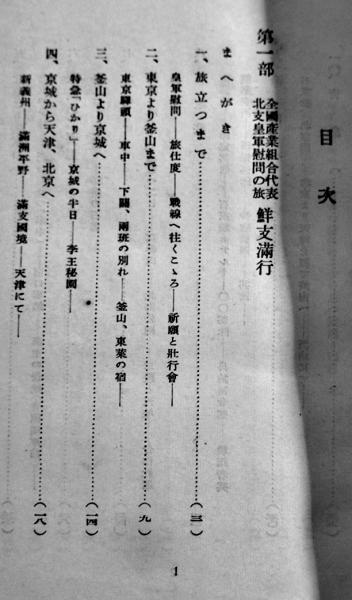 目次
第一部 全國産業組合代表
北支皇軍慰問の旅 鮮支滿行
まへがき
一、旅立つまで……(三)
皇軍慰問——旅仕度——戰線へ往くこゝろ——祈願と壯行會——
二、東京より釜山まで……(九)
東京驛頭——車中——下關、兩班の別れ——釜山、東萊の宿——
三、釜山より京城へ……(一四)
特急「ひかり」——京城の半日——李王秘園——
四、京城から天津、北京へ……(一八)
新義州——滿洲平野——滿支國境——天津にて——
1